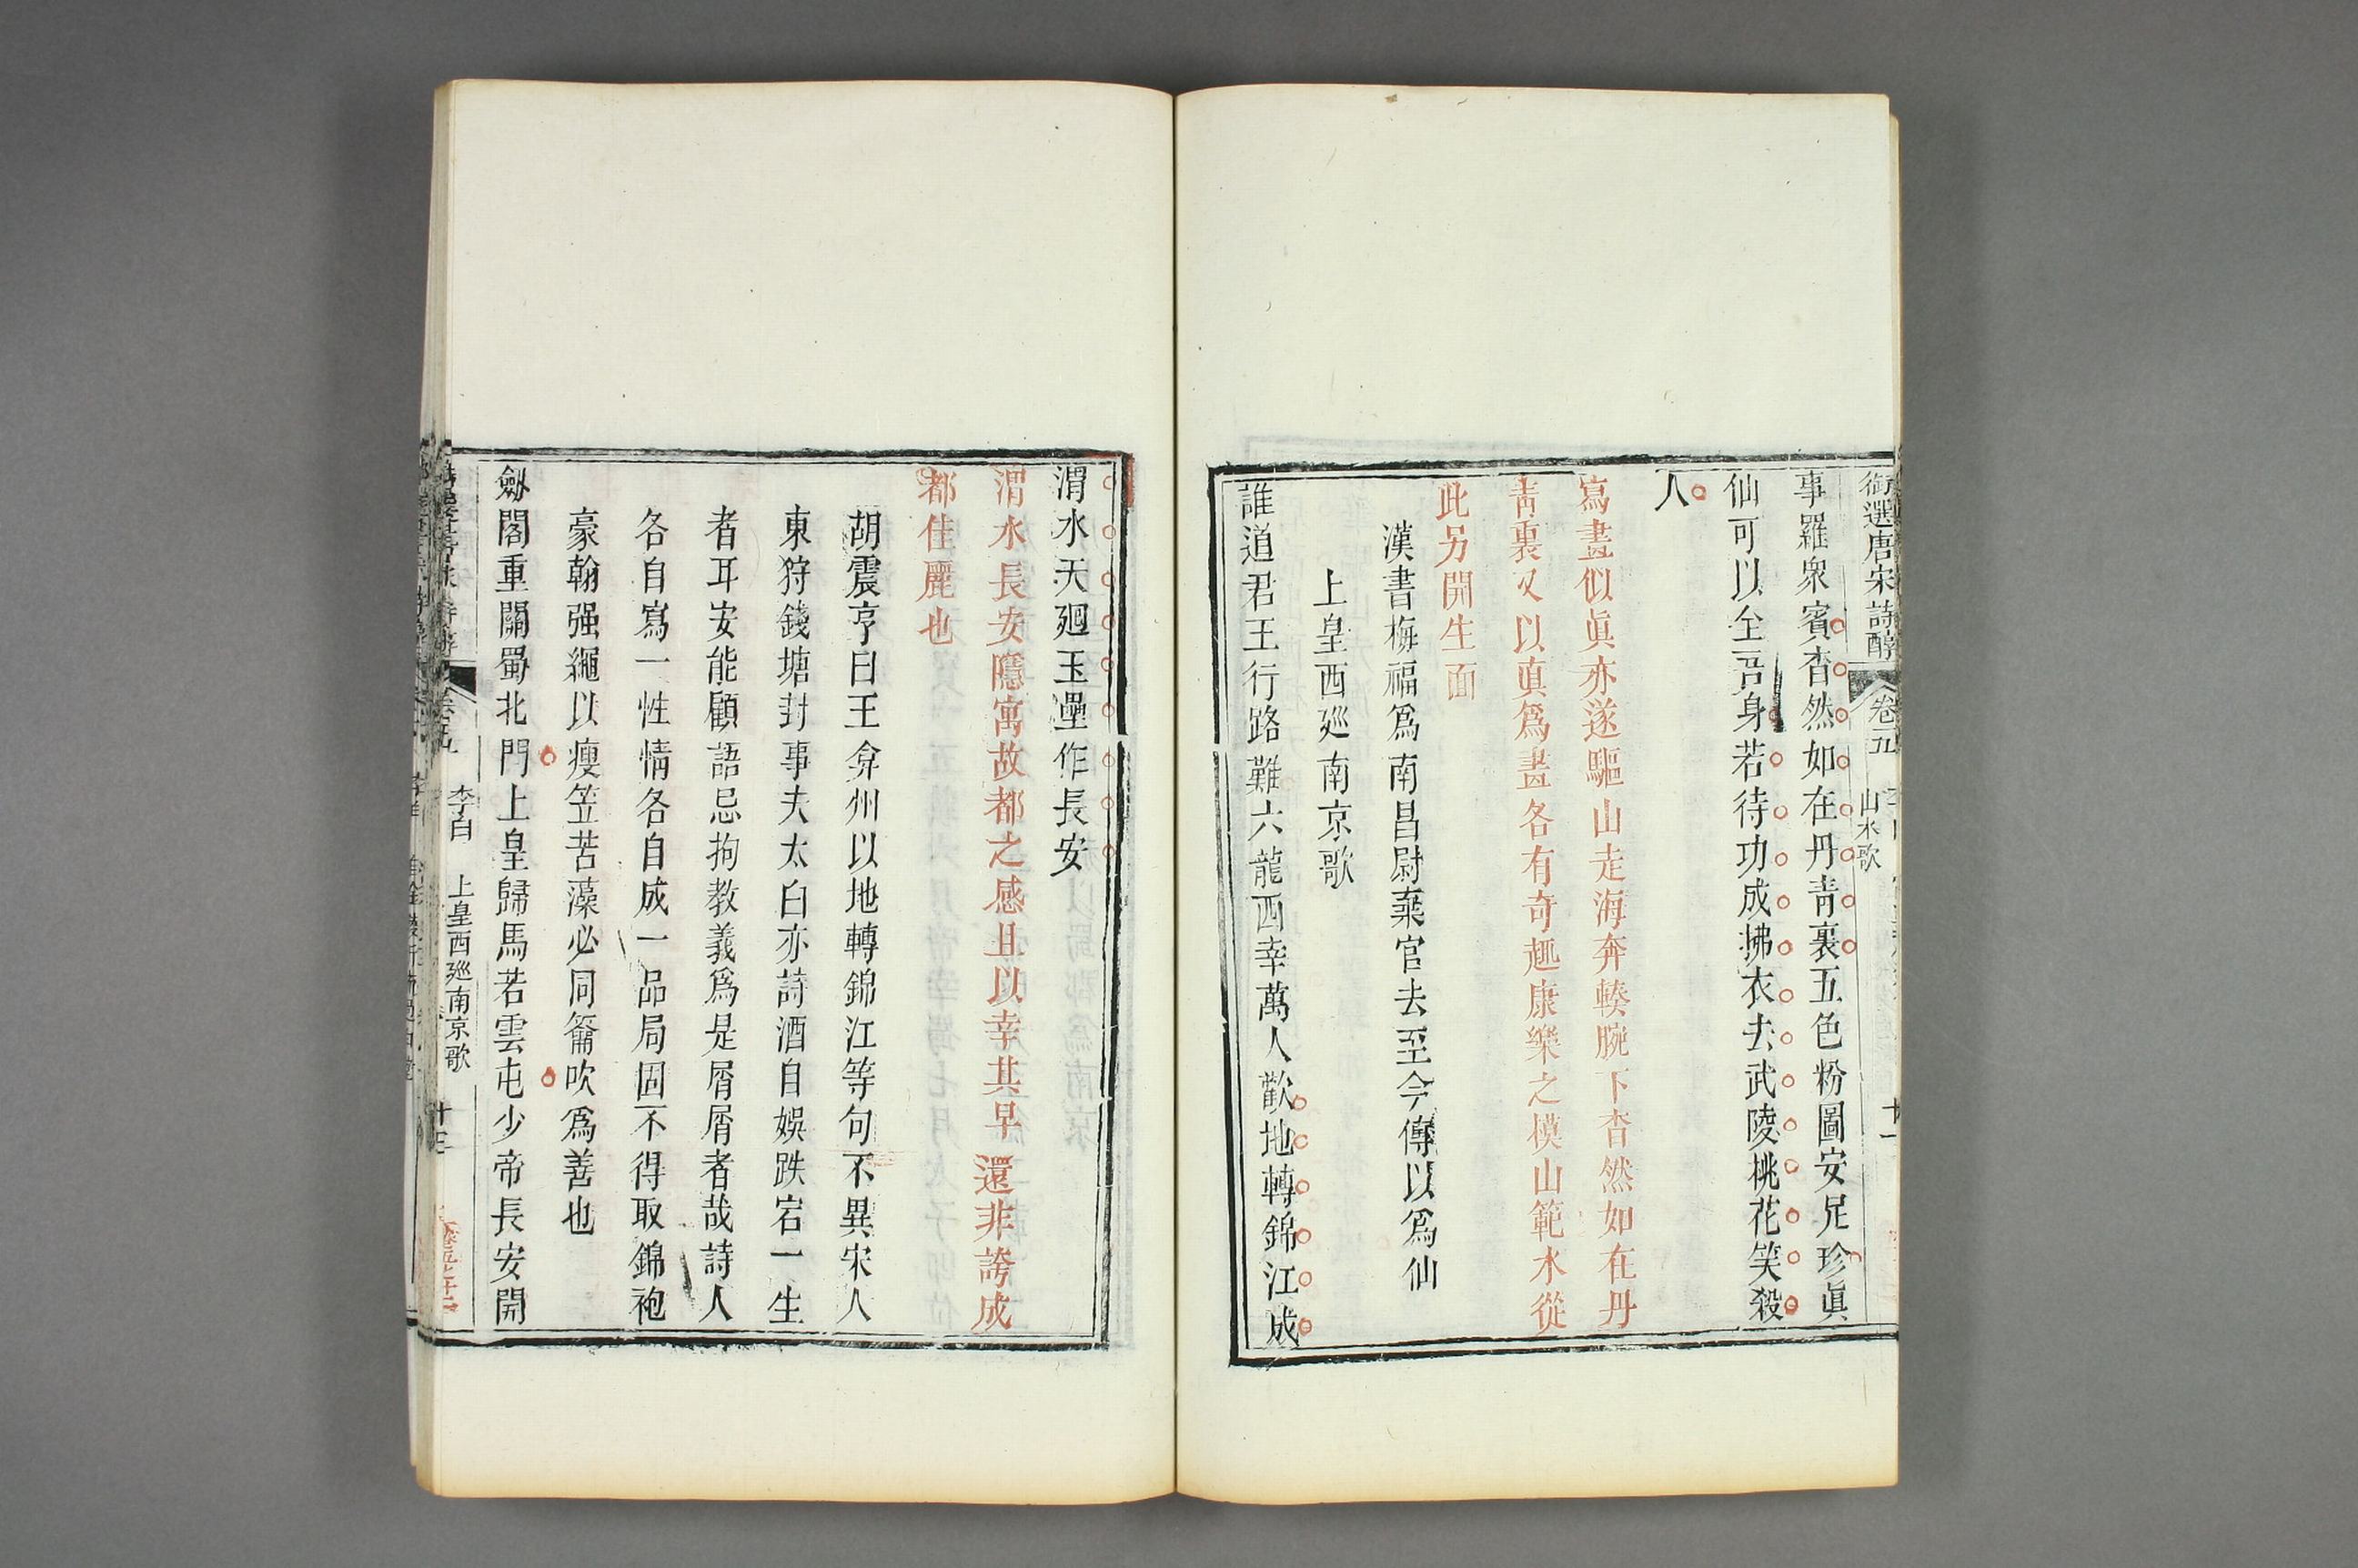 御選唐宋詩醇 卷五 山水歌 十一
事羅衆賓杳然如在丹青裏五色粉圖安足珍眞
仙可以全吾身若待功成拂衣去武陵桃花笑殺
人
寫畫似眞亦遂驅山走海奔輳腕下杳然如在丹
青裏又以眞爲畫各有奇趣康樂之模山範水從
此另開生面
漢書梅福爲南昌尉棄官去至今傳以爲仙
上皇西廵南京歌
誰道君王行路難六龍西幸萬人歡地轉錦江成
渭水天廻玉壘作長安
渭水長安隱寓故都之感且以幸其早還非誇成
都佳麗也
胡震亨曰王弇州以地轉錦江等句不異宋人
東狩錢塘封事夫太白亦詩酒自娛跌宕一生
者耳安能顧語忌拘教義爲是屑屑者哉詩人
各自寫一性情各自成一品局固不得取錦袍
豪翰强繩以瘦笠苦藻必同籥吹爲善也
劒閣重關蜀北門上皇歸馬若雲屯少帝長安開
李白 上皇西廵南京歌